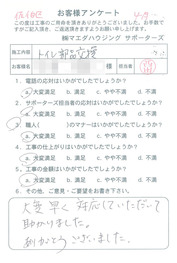 お客様アンケート
この度は工事のご用命を頂きありがとうございました。お手数で
すがご記入頂き、ご返送頂きますようお願い申し上げます。
㈱マエダハウジング サポーターズ
工事内容 トイレ部品交換
お名前 様 担当者
1. 電話の応対はいかがでしたでしょうか?
a.大変満足 b.満足 c.やや不満 d.不満
2. サポーターズ担当者の応対はいかがでしたでしょうか?
a.大変満足 b.満足 c.やや不満 d.不満
3. 職人( )のマナーはいかがでしたでしょうか?
a.大変満足 b.満足 c.やや不満 d.不満
4. 工事の仕上がりはいかがでしたでしょうか?
a.大変満足 b.満足 c.やや不満 d.不満
5. 工事の価格はいかがでしたでしょうか?
a.大変満足 b.満足 c.やや不満 d.不満
6. その他、ご意見・ご要望をお書き下さい。
大変早く対応していただいて
助かりました。
ありがとうございました。